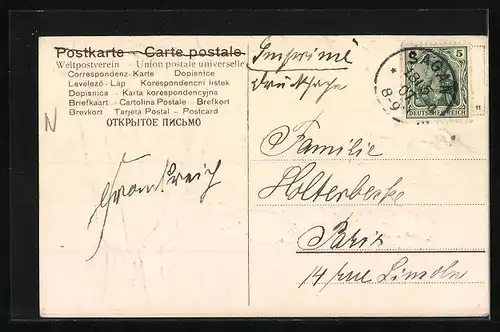 Postkarte - Carte postale
Weltpostverein - Union postale universelle
Correspondenz-Karte Dopisnice
Levelező-Lap Korespondencní listek
Dopisnica - Karta korespondencyjna
Briefkaart - Cartolina Postale - Brefkort
Brevkort - Tarjeta Postal - Postcard
ОТКРЫТОЕ ПИСЬМО
N
Imprimé
Drucksache
SAGAN
5
8-9
DEUTSCHES REICH
Frankreich
Familie
Holterbecke
Paris
14 rue Lincoln